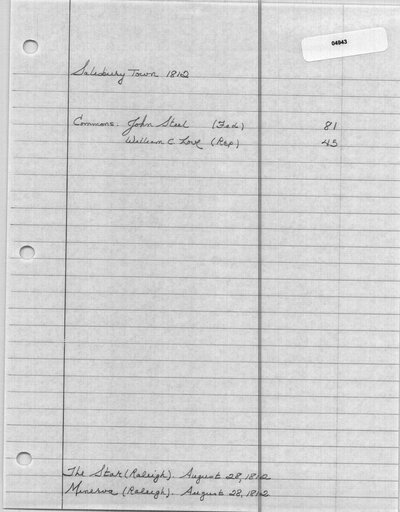 04943
Salisbury Town 1812
Commons: John Steel (Fed) 81
William C. Love (Rep) 45
The Star (Raleigh). August 28, 1812
Minerva (Raleigh). August 28, 1812